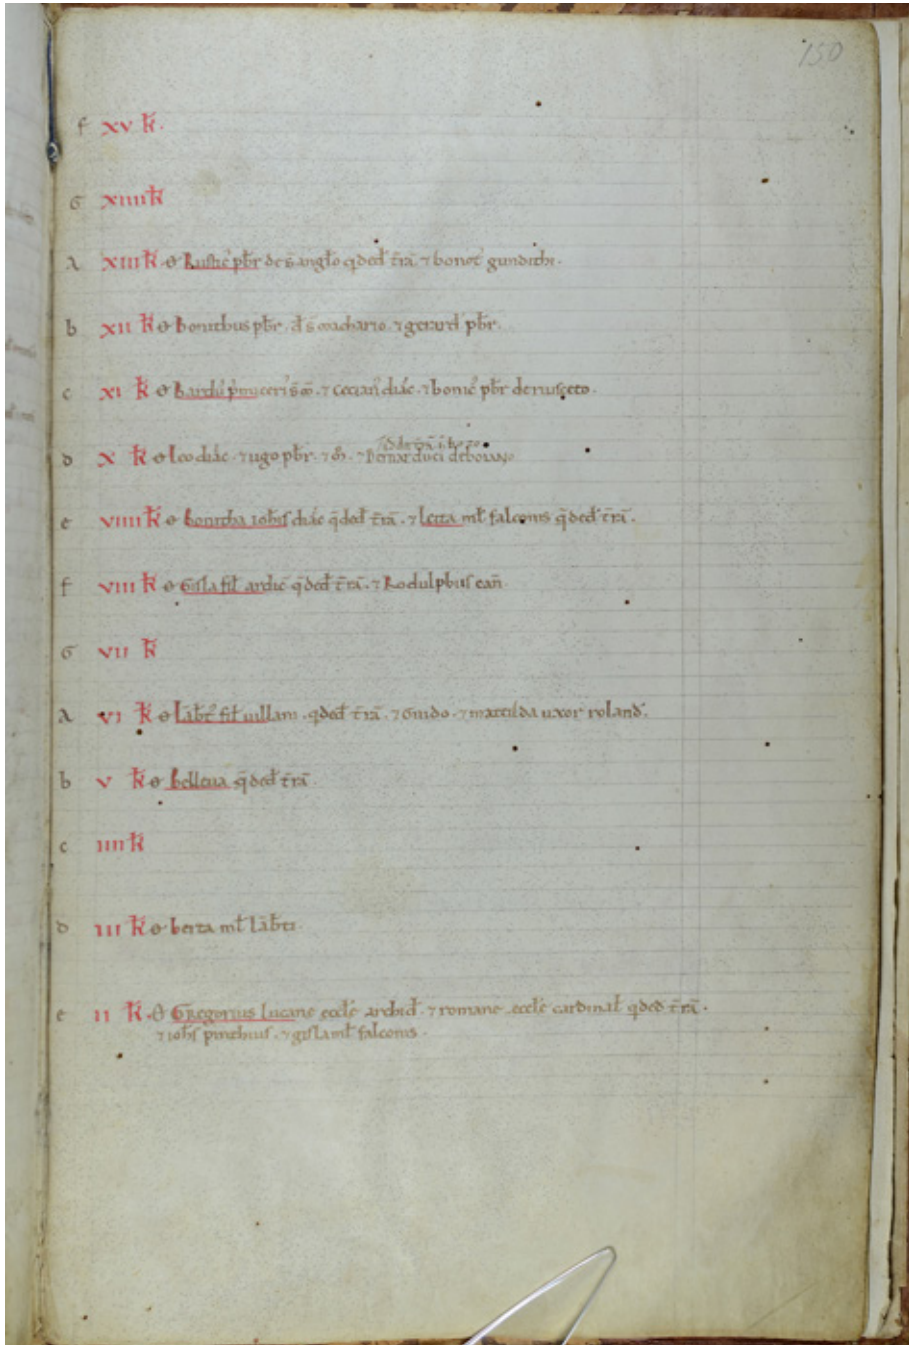 150
f xv k̅.
G xiiii k̅
A xiii k̅ ɵ Rustic̾ pb̅r de s̅ ang̅lo q̅ded̅ t̅rā. ⁊ bonoc̾ gundithi.
b xii k̅ ɵ Bonithus pb̅r. d̅ s̅ machario. ⁊ gerard̅ pb̅r.
c xi k̅ ɵ ⁊ cecian̾ diác. ⁊ bonic̾ pb̅r de rusceto.
d x k̅ ɵ leo diác. ⁊ ugo pb̅r. ⁊ ⁊ Bernarduci de bozano
e viiii k̅ ɵ Bonitha ioh̅is diác q̅ded̅ t̅rā. ⁊ lecta ml̅ falconis q̅ded̅ t̅rā.
f viii k̅ ɵ Gisla fil̅ ardic̾ q̅ded̅ t̅rā. ⁊ Rodulphus can̅.
G vii k̅
A vi k̅ ɵ la̅b̅t̾ fil̅ uillani. q̅ded̅ t̅rā. ⁊ Guido. ⁊ mattilda uxor roland̾.
b v k̅ ɵ belleua q̅ded̅ t̅rā.
c iiii k̅
d iii k̅ ɵ berta ml̅ la̅b̅ti.
e ii k̅. ɵ Gregorius lucane eccl̅e archid̅. ⁊ romane eccl̅e cardinal̅ q̅ded̅ t̅rā.
⁊ ioh̅s pinchius. ⁊ gisla ml̅ falconis.